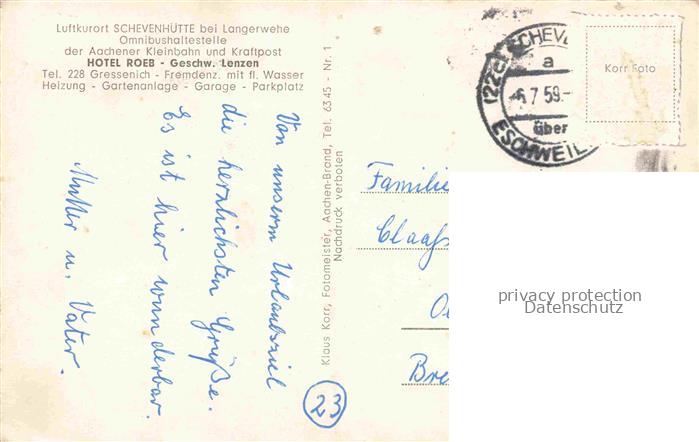 Luftkurort SCHEVENHÜTTE bei Langerwehe
Omnibushaltestelle
der Aachener Kleinbahn und Kraftpost
HOTEL ROEB - Geschw. Lenzen
Tel. 228 Gressenich - Fremdenz. mit fl. Wasser
Heizung - Gartenanlage - Garage - Parkplatz
Von unserm Urlaubsziel
die herzlichsten Grüße.
Es ist hier wunderbar.
Mutter u. Vater.
Klaus Korr, Fotomeister, Aachen-Brand, Tel. 6345 - Nr. 1
Nachdruck verboten
(22c) SCHEV
a
6.7.59.-
über
ESCHWEIL
Korr Foto
Familie
Claaß
O
Bre
23
privacy protection
Datenschutz